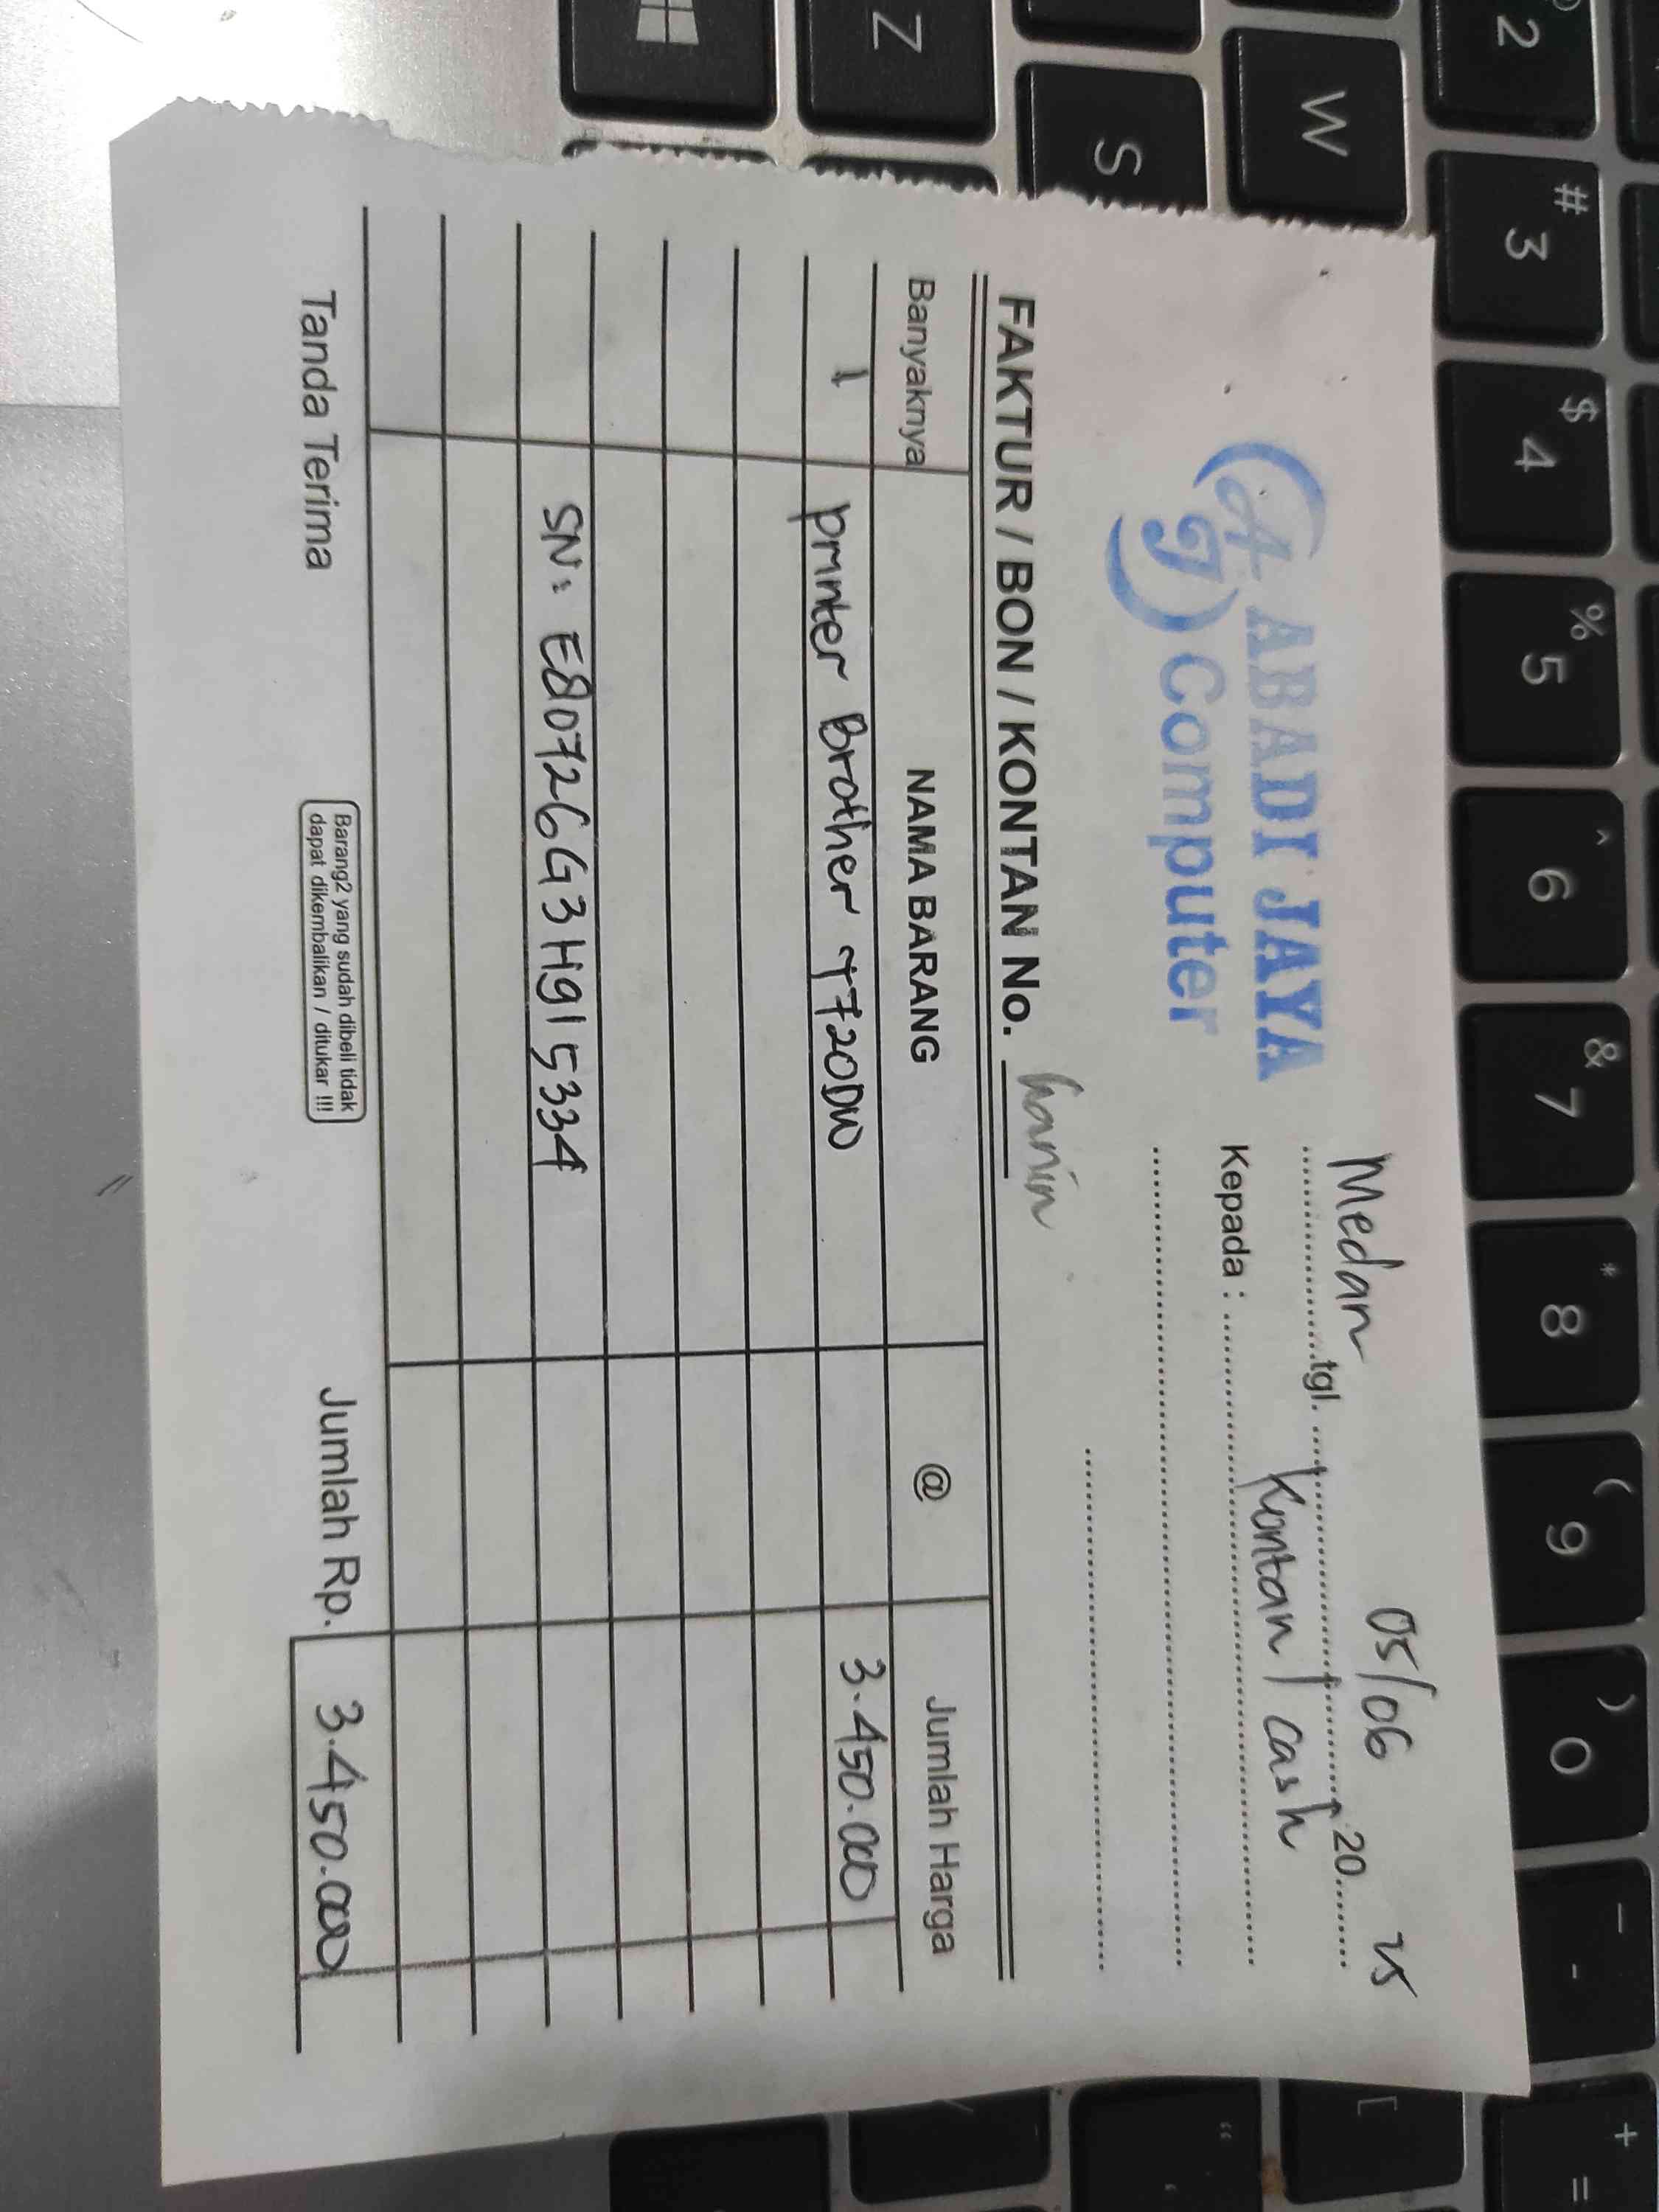 Medan tgl. 05/06 20 25
AJ ABADI JAYA
Computer
Kepada : Kontan / cash
FAKTUR / BON / KONTAN No. hanin
Banyaknya NAMA BARANG @ Jumlah Harga
1 printer Brother T720DW 3.450.000
SN: E80726G3H915334
Tanda Terima
Barang2 yang sudah dibeli tidak
dapat dikembalikan / ditukar !!!
Jumlah Rp. 3.450.000
Z
S
W
2
# 3
$ 4
% 5
^ 6
& 7
* 8
( 9
) 0
_ -
+ =
[
"